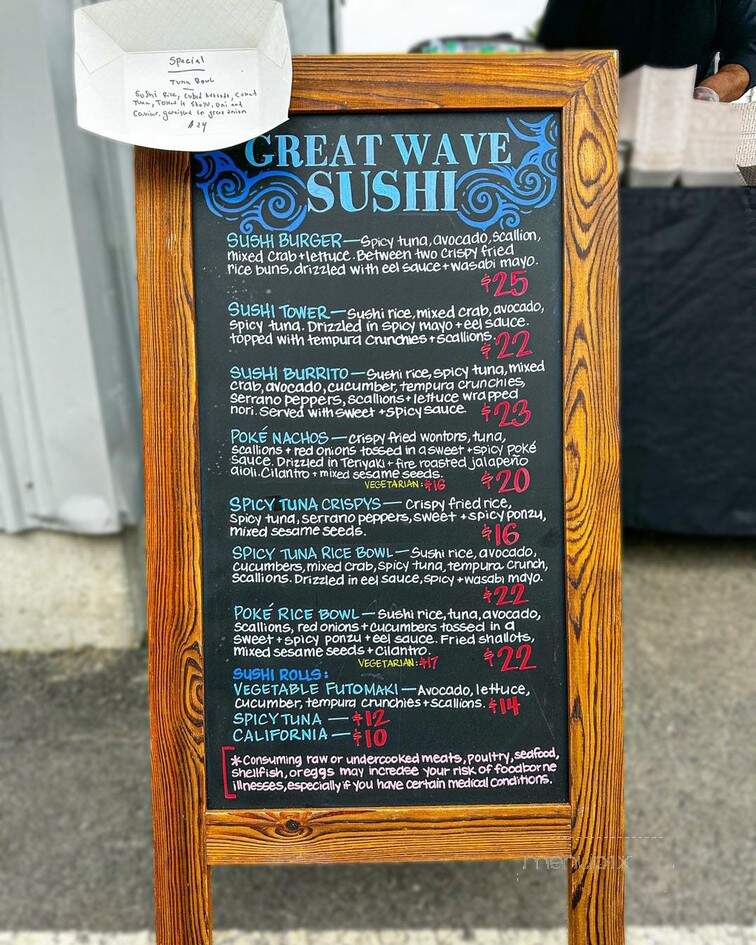 Special
Tuna Bowl
Sushi Rice, Cubed Avocado, Cubed
Tuna, Tossed in Shoyu, Oni and
Caviar, garnished in green onion
$24
GREAT WAVE
SUSHI
SUSHI BURGER—Spicy tuna, avocado, scallion,
mixed crab + lettuce. Between two crispy fried
rice buns, drizzled with eel sauce + wasabi mayo.
$25
SUSHI TOWER—Sushi rice, mixed crab, avocado,
spicy tuna. Drizzled in spicy mayo + eel sauce.
topped with tempura crunchies + scallions. $22
SUSHI BURRITO—Sushi rice, spicy tuna, mixed
crab, avocado, cucumber, tempura crunchies,
serrano peppers, scallions + lettuce wrapped
nori. Served with sweet + spicy sauce. $23
POKÉ NACHOS—crispy fried wontons, tuna,
scallions + red onions tossed in a sweet + spicy poké
sauce. Drizzled in Teriyaki + fire roasted jalapeño
aioli. Cilantro + mixed sesame seeds. $20
VEGETARIAN: $16
SPICY TUNA CRISPYS—Crispy fried rice,
spicy tuna, serrano peppers, sweet + spicy ponzu,
mixed sesame seeds. $16
SPICY TUNA RICE BOWL—Sushi rice, avocado,
cucumbers, mixed crab, spicy tuna, tempura crunch,
scallions. Drizzled in eel sauce, spicy + wasabi mayo.
$22
POKÉ RICE BOWL—Sushi rice, tuna, avocado,
scallions, red onions + cucumbers tossed in a
sweet + spicy ponzu + eel sauce. Fried shallots,
mixed sesame seeds + cilantro.
VEGETARIAN: $17 $22
SUSHI ROLLS:
VEGETABLE FUTOMAKI—Avocado, lettuce,
cucumber, tempura crunchies + scallions. $14
SPICY TUNA—$12
CALIFORNIA—$10
*Consuming raw or undercooked meats, poultry, seafood,
shellfish, or eggs may increase your risk of foodborne
illnesses, especially if you have certain medical conditions.
menupix